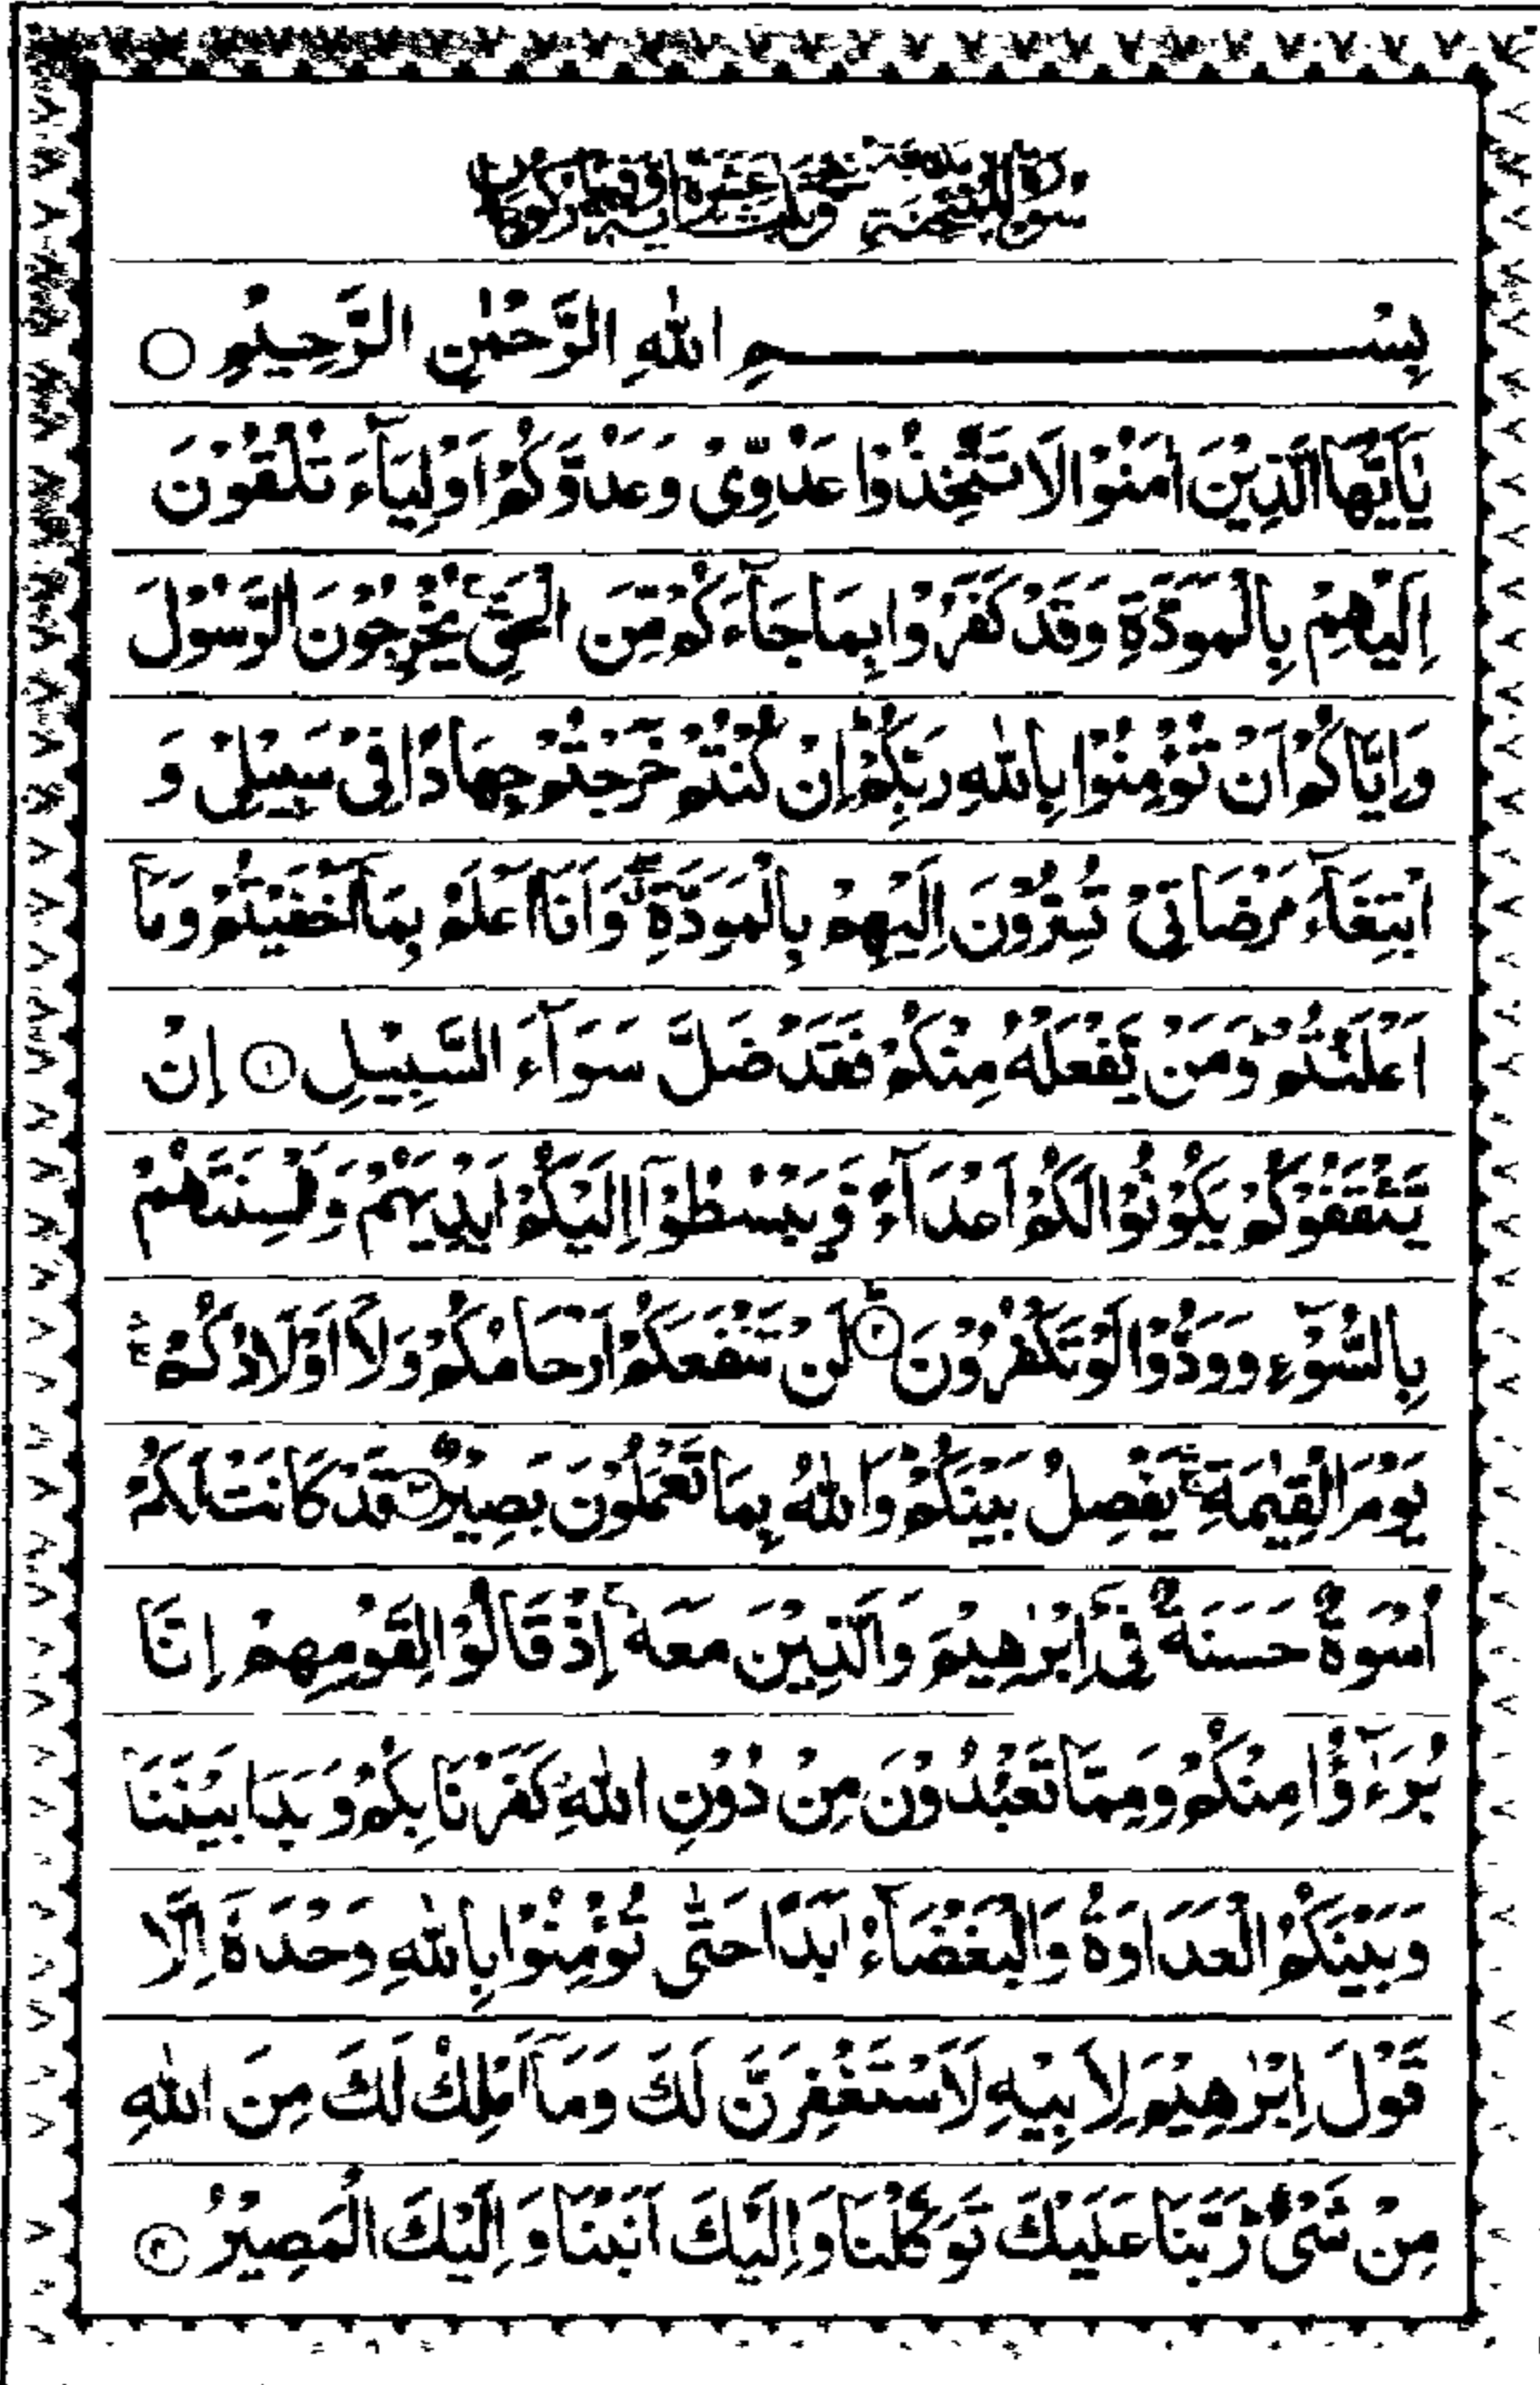 سُوْرَةُ الْمُمْتَحِنَةِ مَدَنِيَّةٌ وَّهِيَ ثَلٰثَ عَشْرَةَ اٰيَةً وَّفِيْهَا رُكُوْعَانِ
بِسْمِ اللهِ الرَّحْمٰنِ الرَّحِيْمِ ○
يٰٓاَيُّهَا الَّذِيْنَ اٰمَنُوْا لَا تَتَّخِذُوْا عَدُوِّيْ وَعَدُوَّكُمْ اَوْلِيَآءَ تُلْقُوْنَ
اِلَيْهِمْ بِالْمَوَدَّةِ وَقَدْ كَفَرُوْا بِمَا جَآءَكُمْ مِّنَ الْحَقِّ ۚ يُخْرِجُوْنَ الرَّسُوْلَ
وَاِيَّاكُمْ اَنْ تُؤْمِنُوْا بِاللهِ رَبِّكُمْ ؕ اِنْ كُنْتُمْ خَرَجْتُمْ جِهَادًا فِيْ سَبِيْلِيْ وَ
ابْتِغَآءَ مَرْضَاتِيْ تُسِرُّوْنَ اِلَيْهِمْ بِالْمَوَدَّةِ ۖ وَاَنَا اَعْلَمُ بِمَآ اَخْفَيْتُمْ وَمَآ
اَعْلَنْتُمْ ؕ وَمَنْ يَّفْعَلْهُ مِنْكُمْ فَقَدْ ضَلَّ سَوَآءَ السَّبِيْلِ ① اِنْ
يَّثْقَفُوْكُمْ يَكُوْنُوْا لَكُمْ اَعْدَآءً وَّيَبْسُطُوْٓا اِلَيْكُمْ اَيْدِيَهُمْ وَاَلْسِنَتَهُمْ
بِالسُّوْٓءِ وَوَدُّوْا لَوْ تَكْفُرُوْنَ ② ؕ لَنْ تَنْفَعَكُمْ اَرْحَامُكُمْ وَلَآ اَوْلَادُكُمْ ۛۚ
يَوْمَ الْقِيٰمَةِ ۛۚ يَفْصِلُ بَيْنَكُمْ ؕ وَاللهُ بِمَا تَعْمَلُوْنَ بَصِيْرٌ ③ قَدْ كَانَتْ لَكُمْ
اُسْوَةٌ حَسَنَةٌ فِيْٓ اِبْرٰهِيْمَ وَالَّذِيْنَ مَعَهٗ ۚ اِذْ قَالُوْا لِقَوْمِهِمْ اِنَّا
بُرَءٰٓؤُا مِنْكُمْ وَمِمَّا تَعْبُدُوْنَ مِنْ دُوْنِ اللهِ ۡ كَفَرْنَا بِكُمْ وَبَدَا بَيْنَنَا
وَبَيْنَكُمُ الْعَدَاوَةُ وَالْبَغْضَآءُ اَبَدًا حَتّٰى تُؤْمِنُوْا بِاللهِ وَحْدَهٗٓ اِلَّا
قَوْلَ اِبْرٰهِيْمَ لِاَبِيْهِ لَاَسْتَغْفِرَنَّ لَكَ وَمَآ اَمْلِكُ لَكَ مِنَ اللهِ
مِنْ شَيْءٍ ؕ رَبَّنَا عَلَيْكَ تَوَكَّلْنَا وَاِلَيْكَ اَنَبْنَا وَاِلَيْكَ الْمَصِيْرُ ④